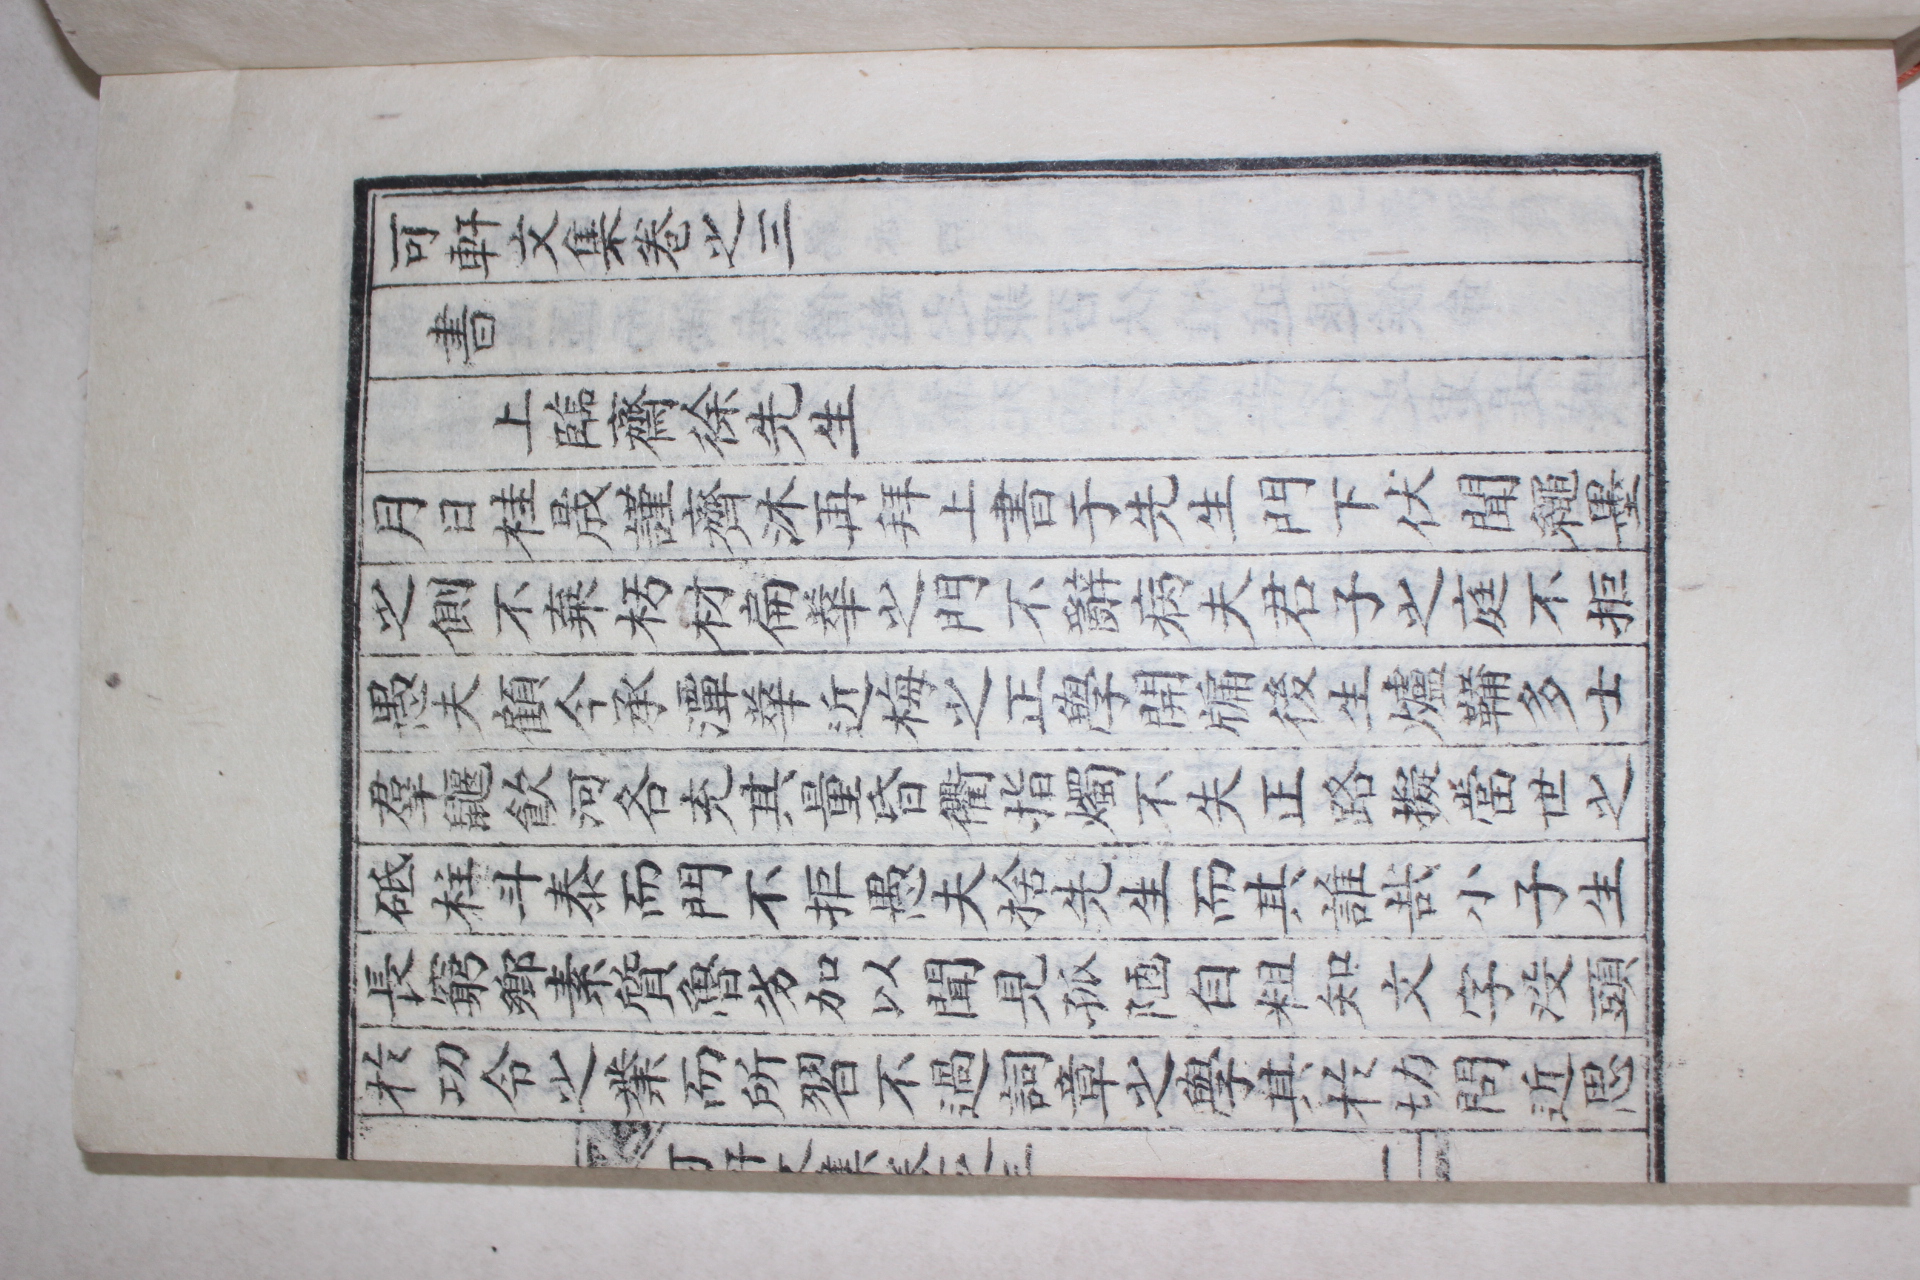 可軒文集卷之三
書
上臨齋徐先生
月日桂晟謹齊沐再拜上書于先生門下伏聞繩墨
之側不棄朽材扁鵲之門不辭病夫君子之庭不拒
愚夫顧今承潭華近梅之正學開牖後生爐鞴多士
羣鼴飮河各充其量昏衢指燭不失正路擬當世之
砥柱斗泰而門不拒愚夫捨先生而其誰哉小子生
長窮鄉素質魯劣加以聞見孤陋自粗知文字沒頭
於功令之業而所習不過詞章之學其於切問近思
可軒文集卷之三
一